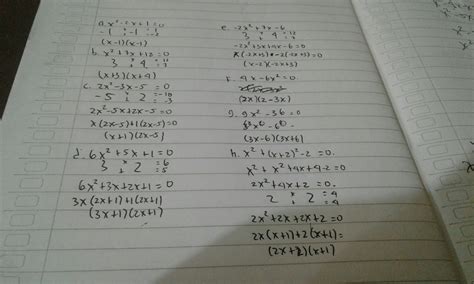 a. x² - 2x + 1 = 0
-1 × -1 = 1
+ = -2
(x-1)(x-1)
b. x² + 7x + 12 = 0
3 × 4 = 12
+ = 7
(x+3)(x+4)
c. 2x² - 3x - 5 = 0
-5 × 2 = -10
+ = -3
2x² - 5x + 2x - 5 = 0
x(2x-5) + 1(2x-5) = 0
(x+1)(2x-5)
d. 6x² + 5x + 1 = 0
3 × 2 = 6
+ = 5
6x² + 3x + 2x + 1 = 0
3x(2x+1) + 1(2x+1)
(3x+1)(2x+1)
e. -2x² + 7x - 6
3 × 4 = 12
+ = 7
-2x² + 3x + 4x - 6 = 0
x(-2x+3) - 2(-2x+3) = 0
(x-2)(-2x+3)
f. 4x - 6x² = 0
(2x)(2-3x)
g. 9x² - 36 = 0
(3x-6)(3x+6)
h. x² + (x+2)² - 2 = 0.
x² + x² + 4x + 4 - 2
2x² + 4x + 2 = 0.
2 × 2 = 4
+ = 4
2x² + 2x + 2x + 2 = 0
2x(x+1) + 2(x+1) =
(2x+2)(x+1)